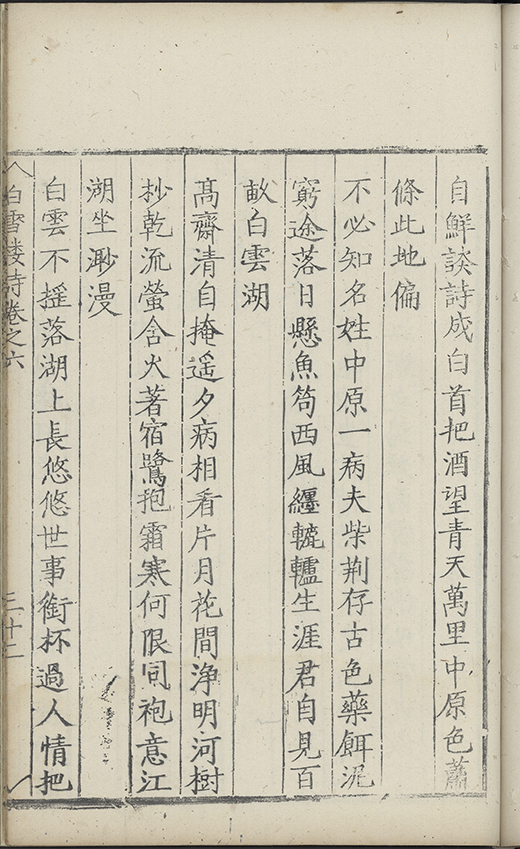 自鮮談詩成白首把酒望青天萬里中原色蕭
條此地偏
不必知名姓中原一病夫柴荆存古色藥餌混
窮途落日懸魚笱西風纏轆轤生涯君自見百
畝白雲湖
髙齋清自掩遥夕病相看片月花間淨明河樹
杪乾流螢含火著宿鷺抱霜寒何限同袍意江
湖坐渺漫
白雲不摇落湖上長悠悠世事銜杯過人情把
白雪樓詩卷之六 三十二